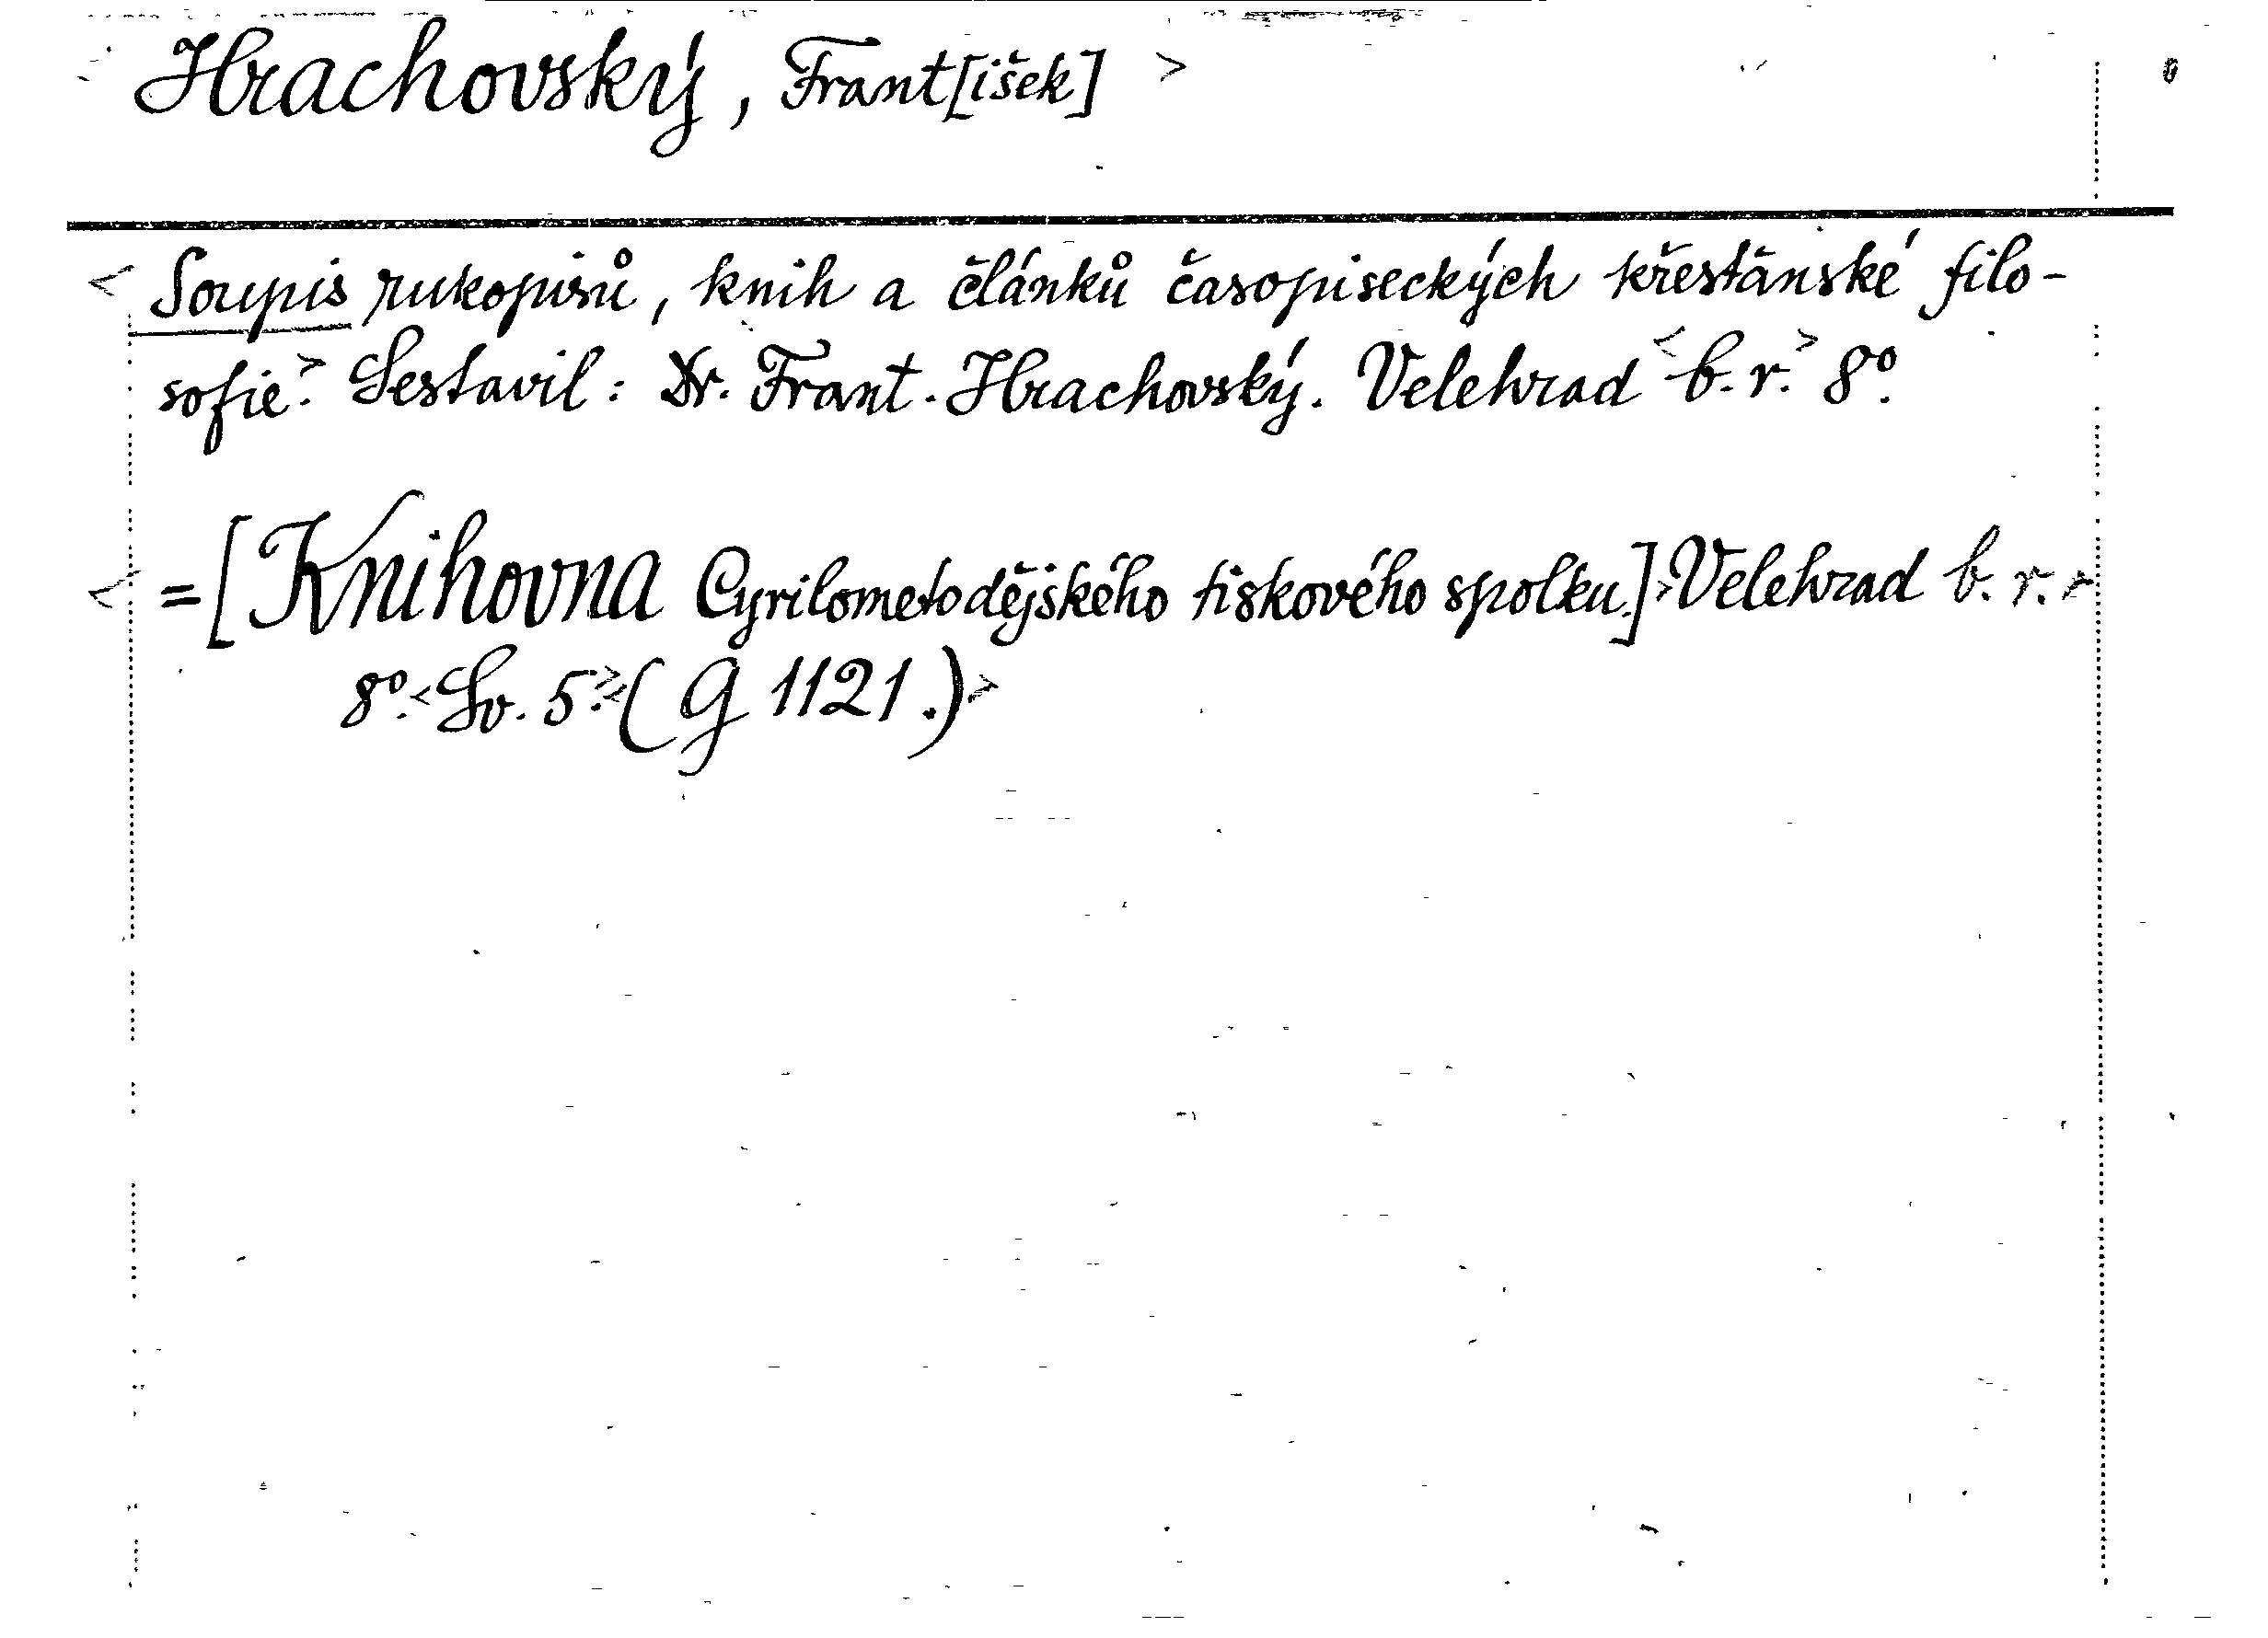 Hrachovský, Frant[išek] >
< Soupis rukopisů, knih a článků časopiseckých křesťanské filo-
sofie.> Sestavil: Dr. Frant. Hrachovský. Velehrad <b. r.> 8°.
< =[Knihovna Cyrilometodějského tiskového spolku.]> Velehrad b. r.>
8°.<Sv. 5.><(G 1121.)>